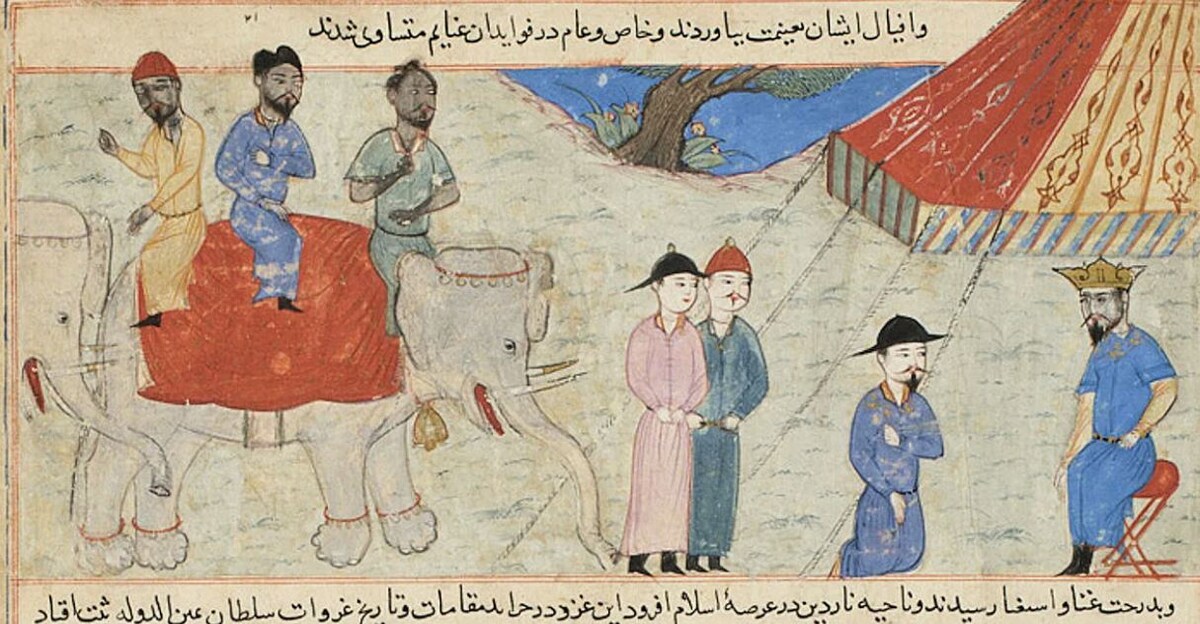 وافیال ایشان بغنیمت بیاوردند و خاص و عام در فواید ان غنایم متساوی شدند
وبدرجت غنا و استغنا رسیدند و ناحیه ناردین در عرصهٔ اسلام افزود این غزو در جراید مقامات و تاریخ غزوات سلطان یمین الدوله ثبت افتاد